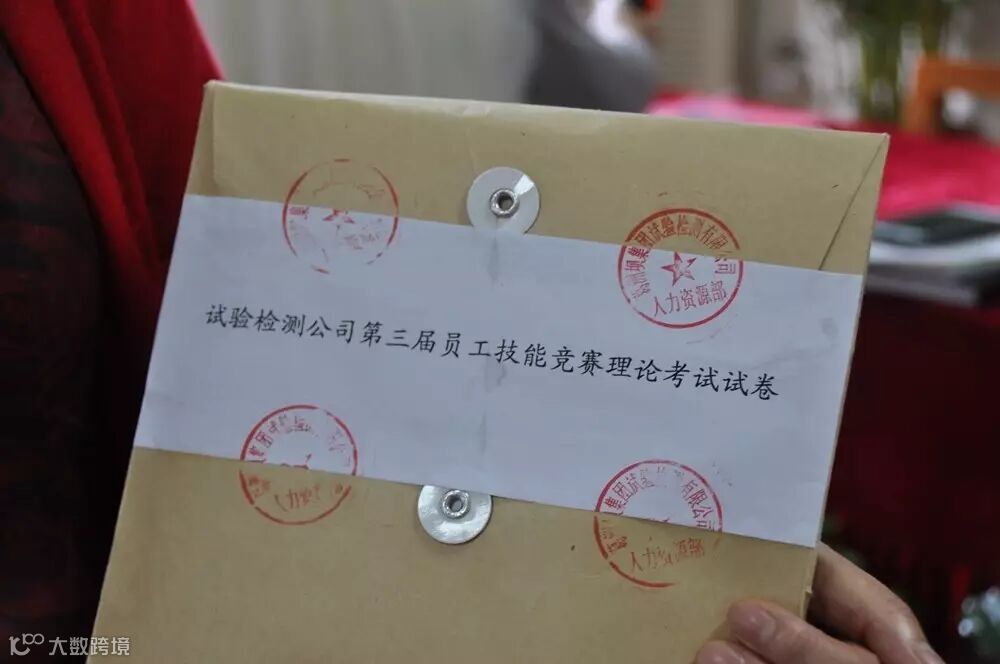 试验检测公司第三届员工技能竞赛理论考试试卷
坝集团试验检测有限公司
人力资源部
集团试验检
人力资
集团试验
有限公司
人力资源部
大数跨境